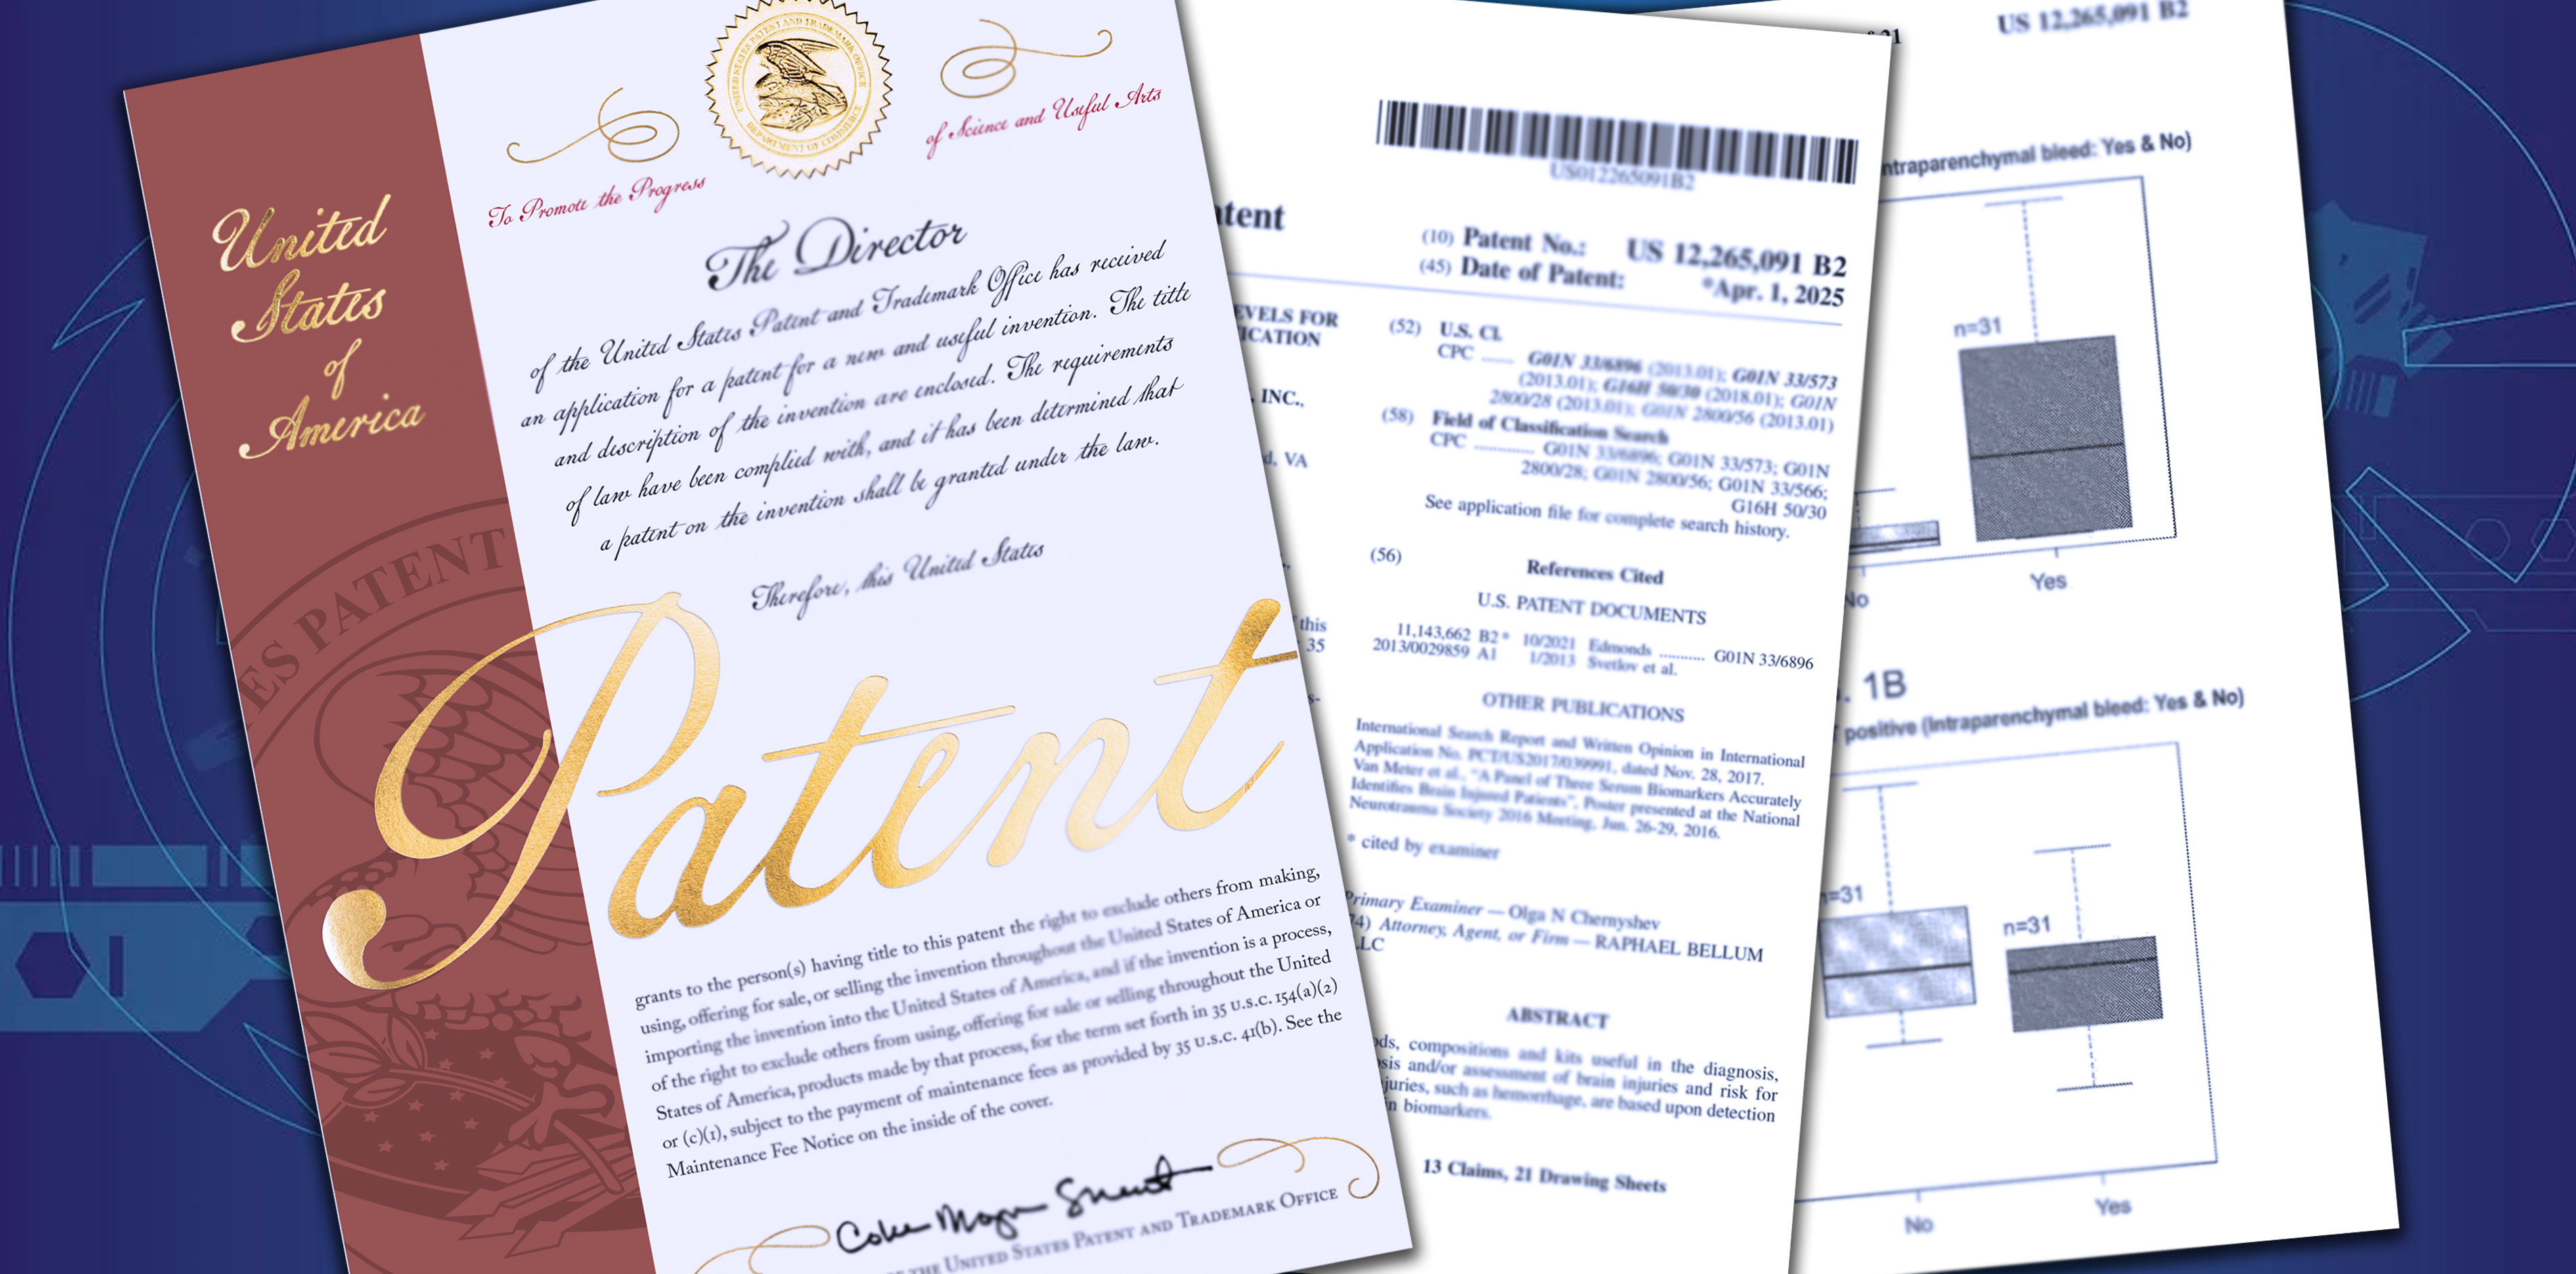 United
States
of
America
UNITED STATES PATENT AND TRADEMARK OFFICE
DEPARTMENT OF COMMERCE
To Promote the Progress
of Science and Useful Arts
The Director
of the United States Patent and Trademark Office has received
an application for a patent for a new and useful invention. The title
and description of the invention are enclosed. The requirements
of law have been complied with, and it has been determined that
a patent on the invention shall be granted under the law.
Therefore, this United States
Patent
grants to the person(s) having title to this patent the right to exclude others from making,
using, offering for sale, or selling the invention throughout the United States of America or
importing the invention into the United States of America, and if the invention is a process,
of the right to exclude others from using, offering for sale or selling throughout the United
States of America, products made by that process, for the term set forth in 35 U.S.C. 154(a)(2)
or (c)(1), subject to the payment of maintenance fees as provided by 35 U.S.C. 41(b). See the
Maintenance Fee Notice on the inside of the cover.
THE UNITED STATES PATENT AND TRADEMARK OFFICE
ES PATENT
US012265091B2
tent
(10) Patent No.: US 12,265,091 B2
(45) Date of Patent: *Apr. 1, 2025
EVELS FOR
ICATION
INC.,
d, VA
this
35
s-
(52) U.S. Cl.
CPC ...... G01N 33/6896 (2013.01); G01N 33/573
(2013.01); G16H 50/30 (2018.01); G01N
2800/28 (2013.01); G01N 2800/56 (2013.01)
(58) Field of Classification Search
CPC ............. G01N 33/6896; G01N 33/573; G01N
2800/28; G01N 2800/56; G01N 33/566;
G16H 50/30
See application file for complete search history.
(56) References Cited
U.S. PATENT DOCUMENTS
11,143,662 B2* 10/2021 Edmonds ........... G01N 33/6896
2013/0029859 A1 1/2013 Svetlov et al.
OTHER PUBLICATIONS
International Search Report and Written Opinion in International
Application No. PCT/US2017/039991, dated Nov. 28, 2017.
Van Meter et al., "A Panel of Three Serum Biomarkers Accurately
Identifies Brain Injured Patients", Poster presented at the National
Neurotrauma Society 2016 Meeting, Jun. 26-29, 2016.
* cited by examiner
Primary Examiner — Olga N Chernyshev
74) Attorney, Agent, or Firm — RAPHAEL BELLUM
LLC
ABSTRACT
ods, compositions and kits useful in the diagnosis,
osis and/or assessment of brain injuries and risk for
juries, such as hemorrhage, are based upon detection
in biomarkers.
13 Claims, 21 Drawing Sheets
21 US 12,265,091 B2
ntraparenchymal bleed: Yes & No)
n=31
No Yes
. 1B
positive (Intraparenchymal bleed: Yes & No)
n=31
n=31
No Yes